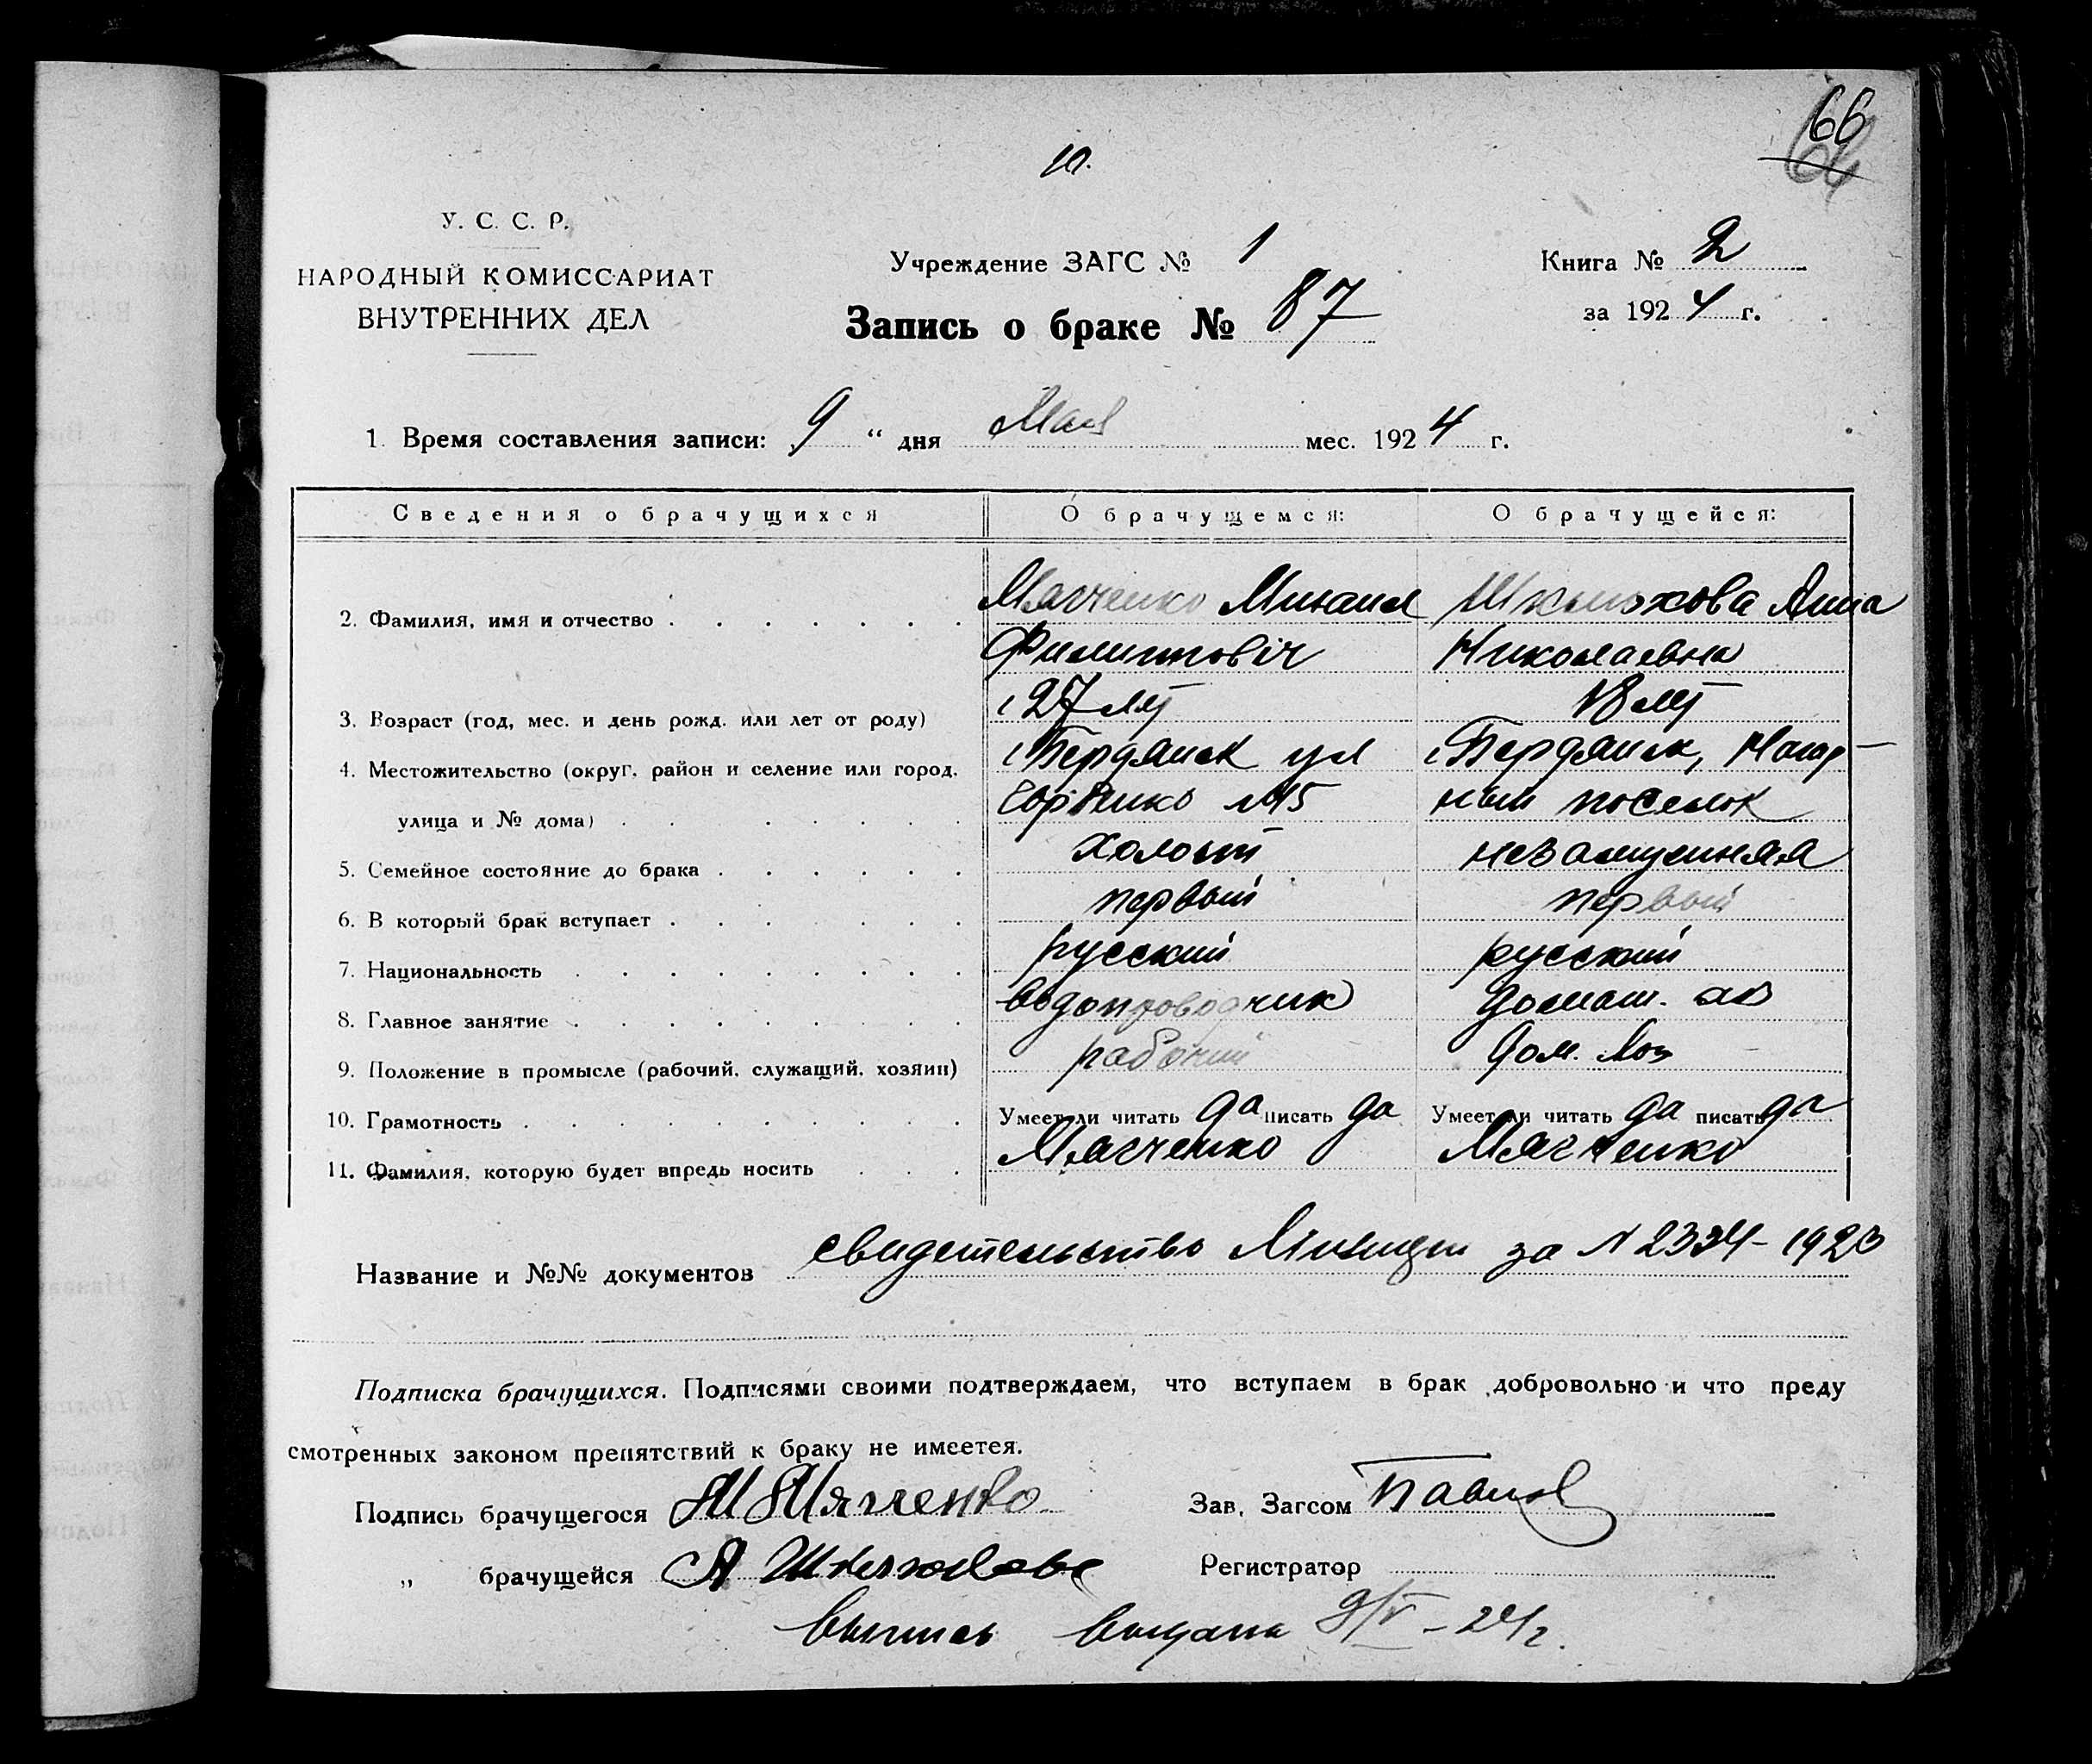 66
64
10.
У. С. С. Р.
НАРОДНЫЙ КОМИССАРИАТ
ВНУТРЕННИХ ДЕЛ
Учреждение ЗАГС № 1
Запись о браке № 87
Книга № 2
за 1924 г.
1. Время составления записи: 9 " дня Мая мес. 1924 г.
Сведения о брачущихся О брачущемся: О брачущейся:
2. Фамилия, имя и отчество Мягченко Михаил
Филиппович
Анна
Николаевна
3. Возраст (год, мес. и день рожд. или лет от роду) 27 лет 18 лет
4. Местожительство (округ, район и селение или город, г Бердянск ул г Бердянск, Нагор-
улица и № дома) №15 ный поселок
5. Семейное состояние до брака холост незамужняя
6. В который брак вступает первый первый
7. Национальность русский русский
8. Главное занятие водопроводчик домаш. хоз
9. Положение в промысле (рабочий, служащий, хозяин) рабочий дом. хоз
10. Грамотность Умеет ли читать да писать да Умеет ли читать да писать да
11. Фамилия, которую будет впредь носить Мягченко Мягченко
Название и №№ документов свидетельство Милиции за N 2334-1923
Подписка брачущихся. Подписями своими подтверждаем, что вступаем в брак добровольно и что преду
смотренных законом препятствий к браку не имеется.
Подпись брачущегося М Мягченко Зав. Загсом Павлов
" брачущейся А Регистратор
Выпись выдана 9/V-24 г.